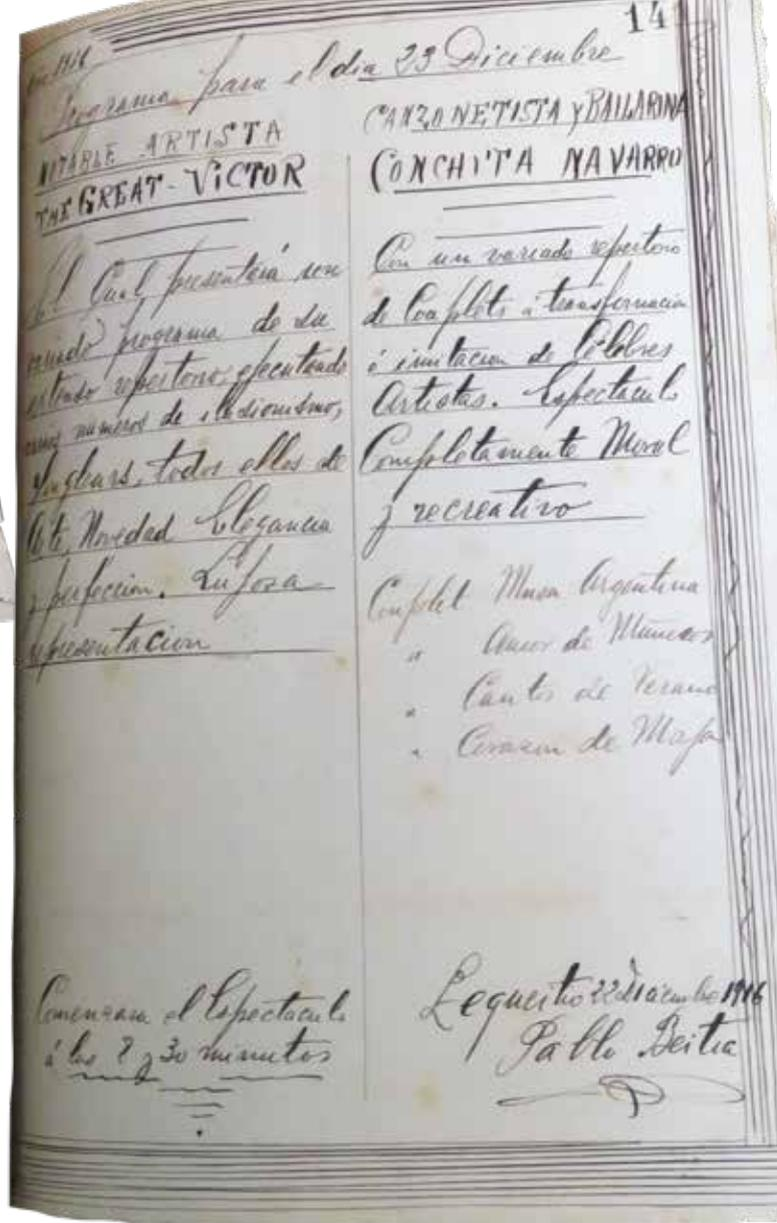 141
1916
Programa para el dia 23 Diciembre
NOTABLE ARTISTA
THE GREAT-VICTOR
Cual presentará un
programa de su
repertorio, ejecutando
varios numeros de iludionismo,
Yuglears, todos ellos de
Arte, Novedad Elegancia
y perfeccion. Lujosa
representacion
Comenzara el Espectaculo
á las 8 y 30 minutos
CANZONETISTA Y BAILARINA
CONCHITA NAVARRO
Con un variado repertorio
de Couplets á transformacion
é imitacion de Célebres
Artistas. Espectaculo
Completamente Moral
y recreativo
Couplet Musa Argentina
" Amor de Muñecos
" Cantos de Verano
" Corazon de Maja
Lequeitio 22 Diciembre 1916
Pablo Beitia